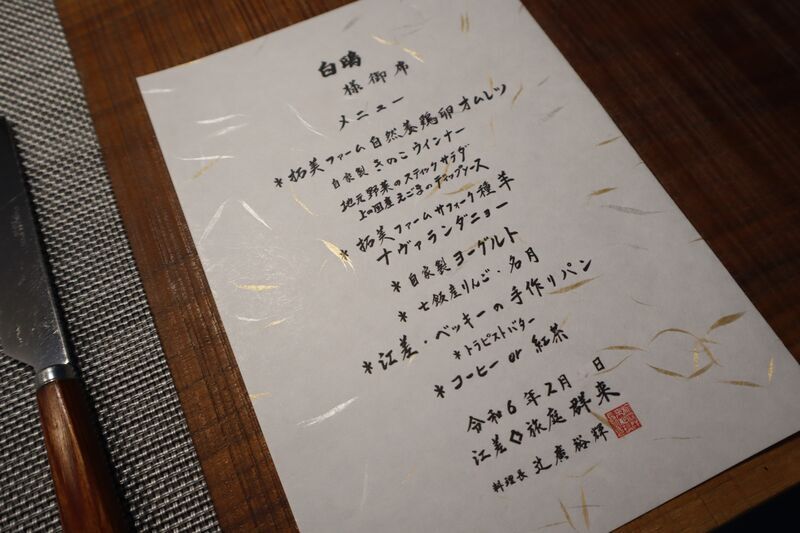 白鴎
様 御席
メニュー
* 拓美ファーム自然養鶏卵オムレツ
自家製きのこウインナー
地元野菜のスティックサラダ
上ノ国産えごまのディップソース
* 拓美ファームサフォーク種羊
ナヴァランダニョー
* 自家製ヨーグルト
* 七飯産りんご・名月
* 江差・ベッキーの手作りパン
* トラピストバター
* コーヒー or 紅茶
令和6年2月 日
江差 旅庭 群来
料理長 辻廣裕輝